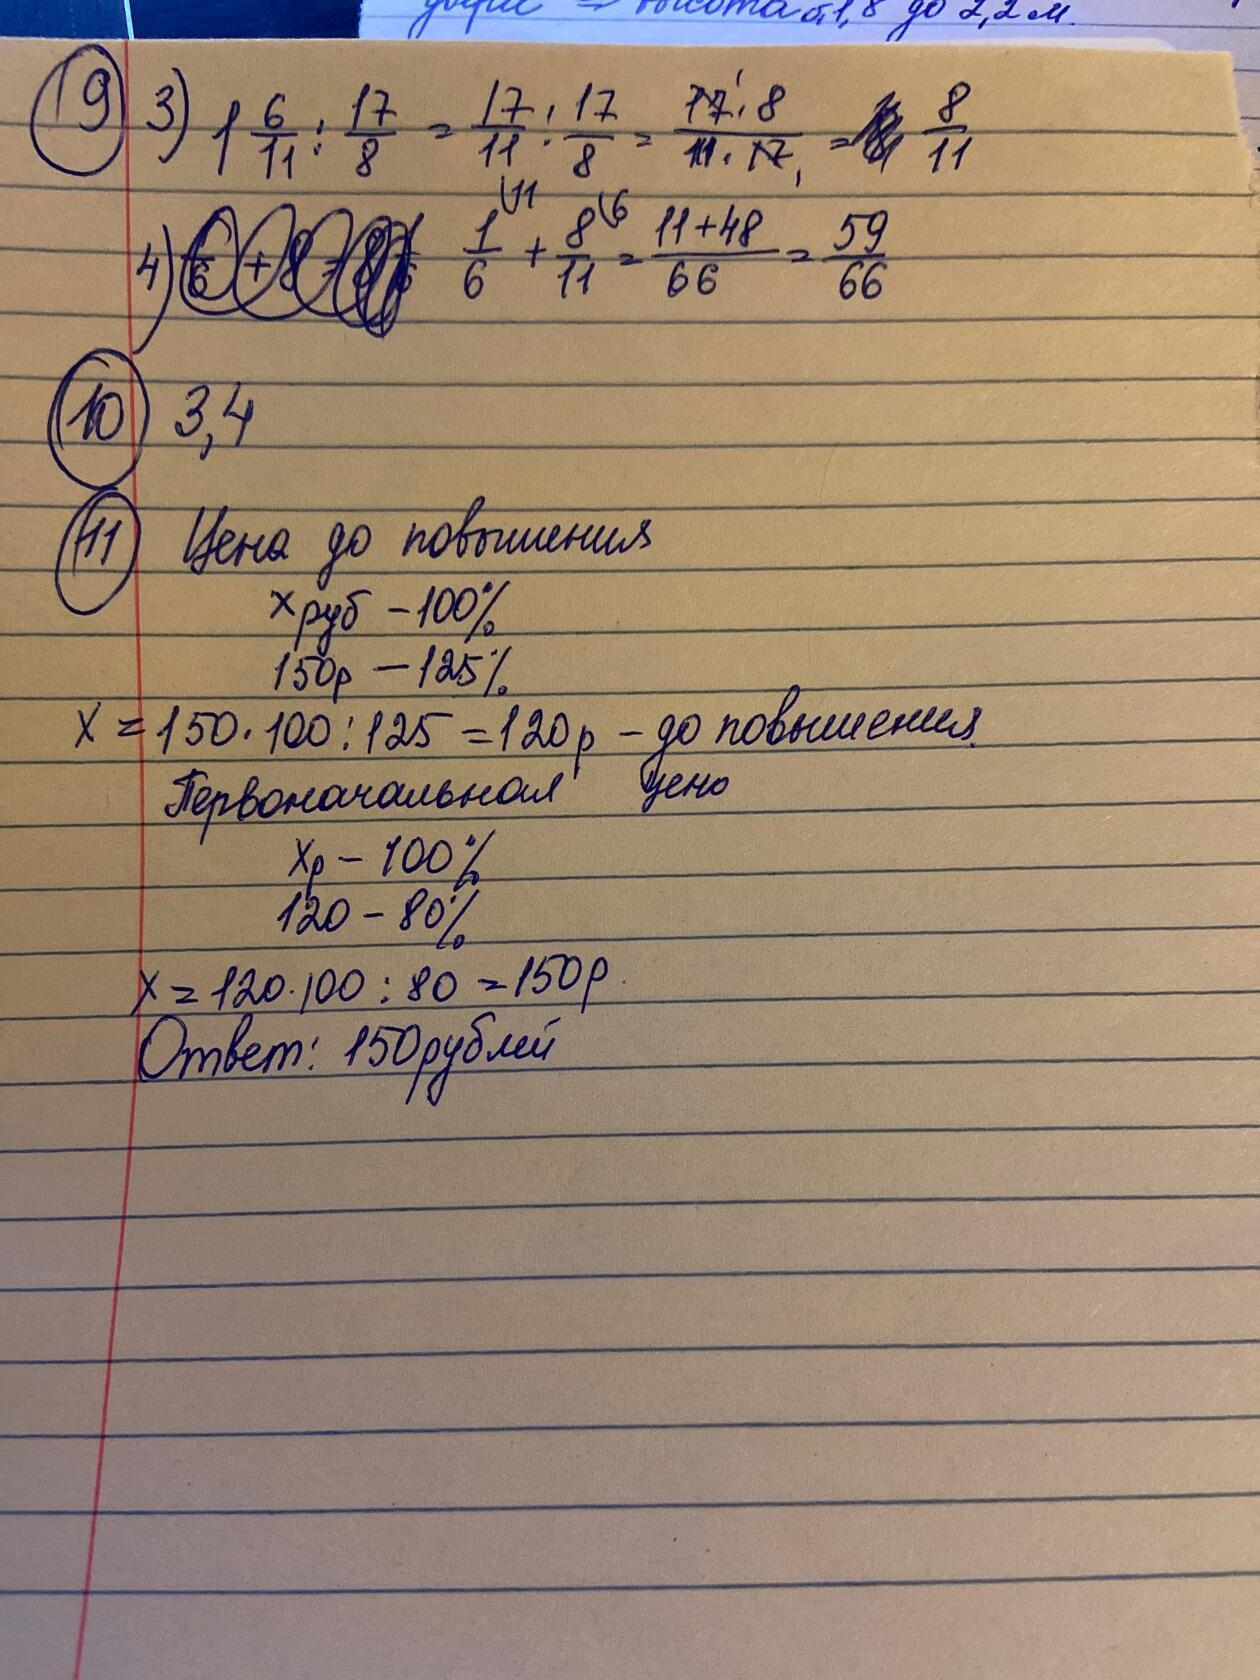 ⇒ высота 1,8 до 2,2 м.
9 3) 1 6/11 : 17/8 = 17/11 : 17/8 = 17·8/11·17 = 8/11
4) 1/6 + 8/11 = 11+48/66 = 59/66
10 3,4
11 Цена до повышения
x руб – 100%
150р – 125%
X = 150·100:125 = 120р – до повышения.
Первоначальная цена
Xр – 100%
120 – 80%
X = 120·100:80 = 150р.
Ответ: 150 рублей